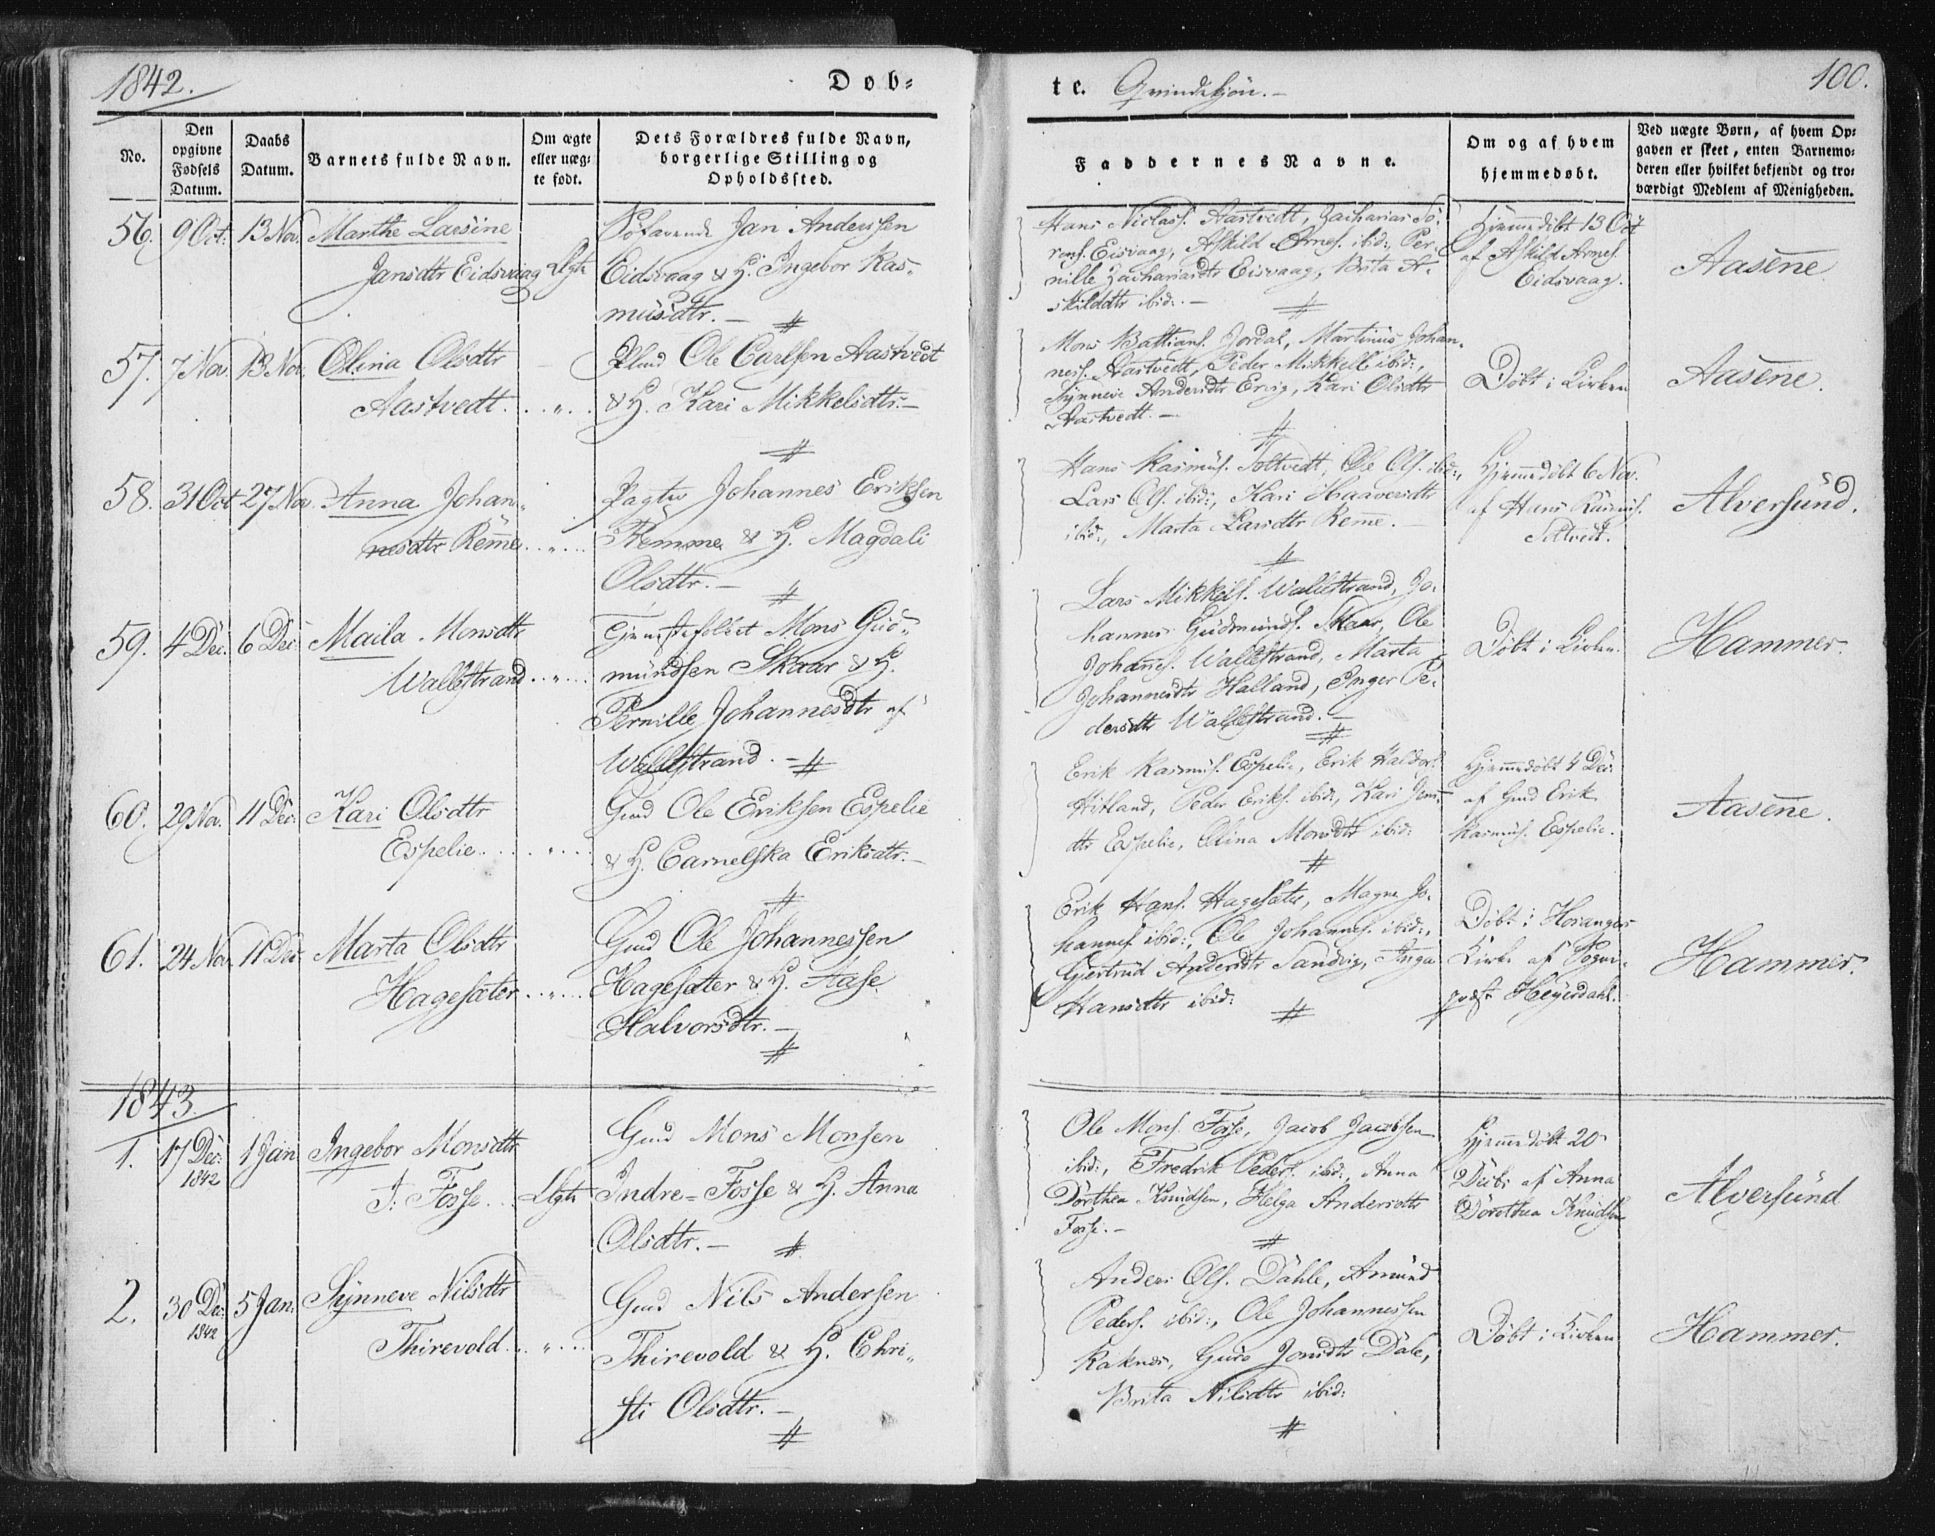 1842.
Døb-
te. Qvindekjøn.
100.
No.
Den opgivne Fødsels Datum.
Daabs Datum.
Barnets fulde Navn.
Om ægte eller uæg-te født.
Dets Forældres fulde Navn, borgerlige Stilling og Opholdssted.
Faddernes Navne.
Om og af hvem hjemmedøbt.
Ved uægte Børn, af hvem Op-
gaven er skeet, enten Barnemo-
deren eller hvilket bekjendt og tro-
værdigt Medlem af Menigheden.
56. 9 Oct. 13 Nov. Marthe Larsine
Jansdtr Eidsvaag Ægte
Jan Anderssen
Eidsvaag & H. Ingebor Ras-
musdtr.
Hans Niclass. Aastvedt, Zacharias Sö-
rens. Eisvaag, Askild Arnes. ibid:, Per-
nille Zachariasdtr Eisvaag, Brita A-
skilddtr ibid:
Hjemmedöbt 13 Oct
af Askild Arnes.
Eidsvaag.
Aasene
57. 7 Nov. 13 Nov. Olina Olsdtr
Aastvedt. . . " . .
Ole Carlsen Aastvedt
& H. Kari Mikkelsdtr.
Mons Bastians. Jordal, Martinus Johan-
nes. Aastvedt, Peder Mikkels. ibid:,
Synneve Andersdtr Ervig, Kari Olsdtr
Aastvedt.
Döbt i Kirken
Aasene.
58. 31 Oct 27 Nov. Anna Johan-
nesdtr Remme . . " . .
Pagter Johannes Eriksen
Remme & H. Magdali
Olsdtr.
Hans Rasmus. Toltvedt, Ole Ols. ibid:,
Lars Ols. ibid:, Kari Haaversdtr
ibid:, Marta Larsdtr Remme.
Hjemmedöbt 6 Nov.
af Hans Rasmus.
Toltvedt.
Alversund.
59. 4 Dec. 6 Dec. Maila Monsdtr
Wallestrand . . " . .
Tjenestefolket Mons Gud-
mundsen Skaar & H.
Pernille Johannesdtr af
Wallestrand.
Lars Mikkels. Wallestrand, Jo-
hannes Gudmunds. Skaar, Ole
Johannes. Wallestrand, Marta
Johannesdtr Halland, Inger Pe-
dersdtr Wallestrand.
Döbt i Kirken.
Hammer.
60. 29 Nov. 11 Dec. Kari Olsdtr
Espelie . . " . .
Gmd Ole Eriksen Espelie
& H. Carnelska Eriksdtr.
Erik Rasmus. Espelie, Erik Haldor.
Hitland, Peder Eriks. ibid:, Kari Jens-
dtr Espelie, Olina Monsdtr ibid:
Hjemmedöbt 4 Dec.
af Gmd Erik
Rasmus. Espelie.
Aasene.
61. 24 Nov. 11 Dec. Marta Olsdtr
Hagesæter . . " . .
Gmd Ole Johannessen
Hagesæter & H. Aase
Halvorsdtr.
Erik Hans. Hagesæter, Magne Jo-
hannes. ibid:, Ole Johannes. ibid:,
Gjertrud Andersdtr Sandvig, Inga
Hansdtr ibid:
Döbt i Hosanger
Kirke af Sogne-
præst Heyerdahl.
Hammer.
1843.
1. 17 Dec: 1842 1 Jan Ingebor Monsdtr
I: Fosse . . Ægte
Gmd Mons Monsen
Indre-Fosse & H. Anna
Olsdtr.
Ole Mons. Fosse, Jacob Jacobsen
ibid:, Fredrik Peders. ibid:, Anna
Dorthea Knudsen, Helga Andersdtr
Fosse.
Hjemmedöbt 20
Decbr af Anna
Dorothea Knudsen
Alversund
2. 30 Dec: 1842 5 Jan. Synneve Nilsdtr
Thirevold . . " . .
Gmd Nils Andersen
Thirevold & H. Chri-
sti Olsdtr.
Anders Ols. Dahle, Amund
Peders. ibid:, Ole Johannessen
Raknes, Guro Jonsdtr Dale,
Brita Nilsdtr ibid:
Döbt i Kirken
Hammer.